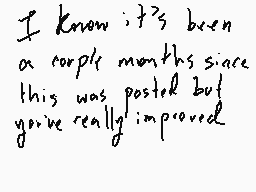 I know it's been
a couple months since
this was posted but
you've really improved